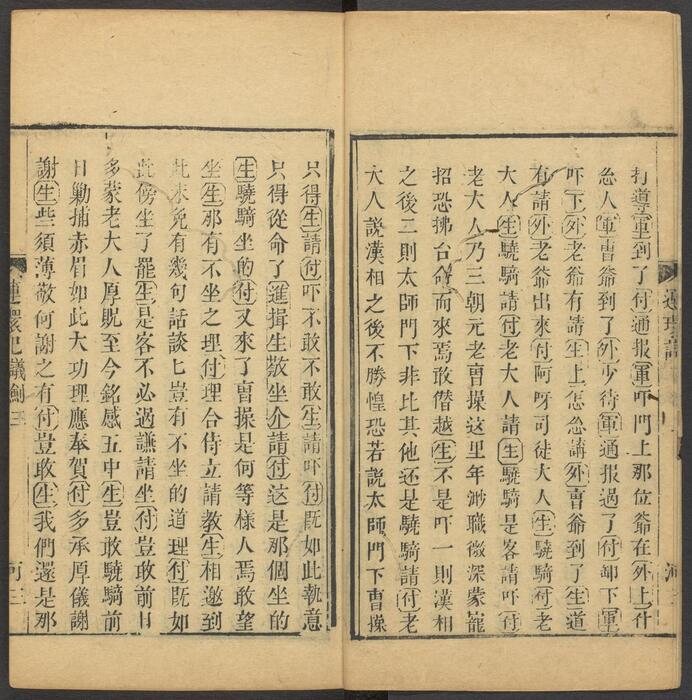 打導軍到了付通報軍吓門上那位爺在外上什
怂人軍曹爺到了外少待軍通報過了付卸下軍
吓下外老爺有請生上怎怂講外曹爺到了生道
有請外老爺出來付阿呀司徒大人生驍騎付老
大人生驍騎請付老大人請生驍騎是客請吓付
老大人乃三朝元老曹操這里年渺職微深蒙寵
招恐拂台命而來焉敢僭越生不是吓一則漢相
之後二則太師門下非比其他还是驍騎請付老
大人說漢相之後不勝惶恐若説太師門下曹操
連環記
只得生請付吓不敢不敢生請吓付既如此執意
只得從命了進揖生敬坐介請付这是那個坐的
生驍騎坐的付又來了曹操是何等様人焉敢望
坐生那有不坐之理付理合侍立請教生相邀到
此未免有幾句話談匕豈有不坐的道理付既如
此傍坐了罷生是客不必過謙請坐付豈敢前日
多蒙老大人厚貺至今銘感五中生豈敢驍騎前
日勦捕赤眉如此大功理應奉賀付多承厚儀謝
謝生些須薄敬何謝之有付豈敢生我們還是那
連環記議劍 三